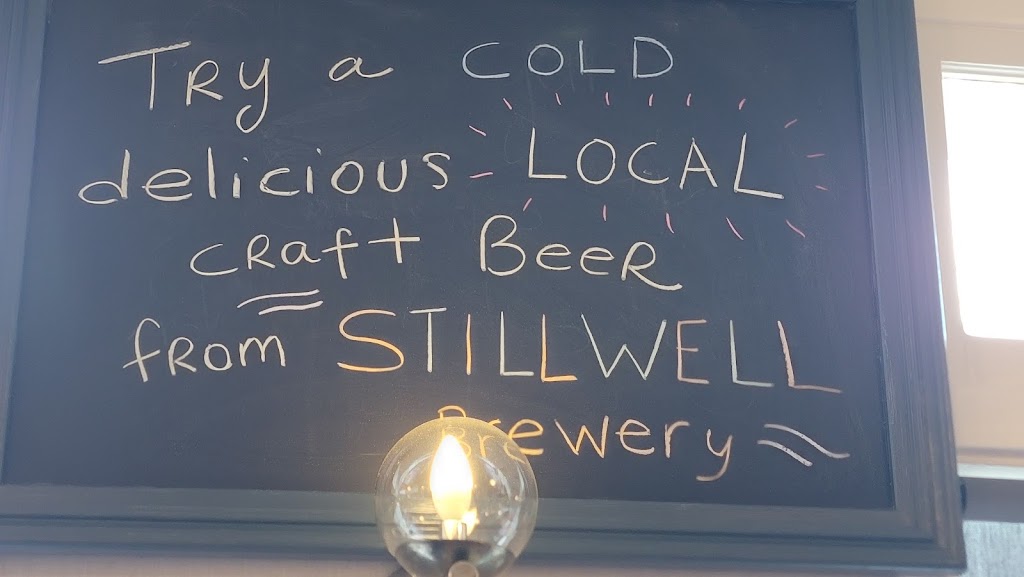 TRY a COLD
delicious LOCAL
CRaft BeeR
fROM STILLWELL
Brewery